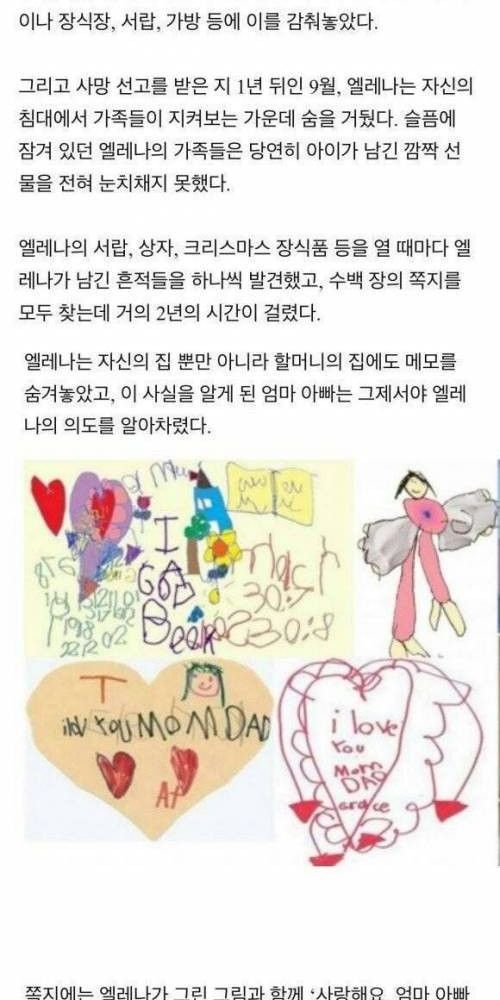 이나 장식장, 서랍, 가방 등에 이를 감춰놓았다.
그리고 사망 선고를 받은 지 1년 뒤인 9월, 엘레나는 자신의
침대에서 가족들이 지켜보는 가운데 숨을 거뒀다. 슬픔에
잠겨 있던 엘레나의 가족들은 당연히 아이가 남긴 깜짝 선
물을 전혀 눈치채지 못했다.
엘레나의 서랍, 상자, 크리스마스 장식품 등을 열 때마다 엘
레나가 남긴 흔적들을 하나씩 발견했고, 수백 장의 쪽지를
모두 찾는데 거의 2년의 시간이 걸렸다.
엘레나는 자신의 집 뿐만 아니라 할머니의 집에도 메모를
숨겨놓았고, 이 사실을 알게 된 엄마 아빠는 그제서야 엘레
나의 의도를 알아차렸다.
I
30:8
YOU MOM DAD
i love
You
Mom
DAD
grace
쪽지에는 엘레나가 그린 그림과 함께 ‘사랑해요, 엄마 아빠